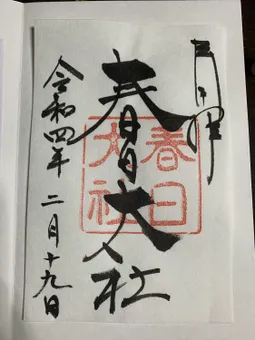 奉拝
春日大社
令和四年 二月十九日
春日
大社